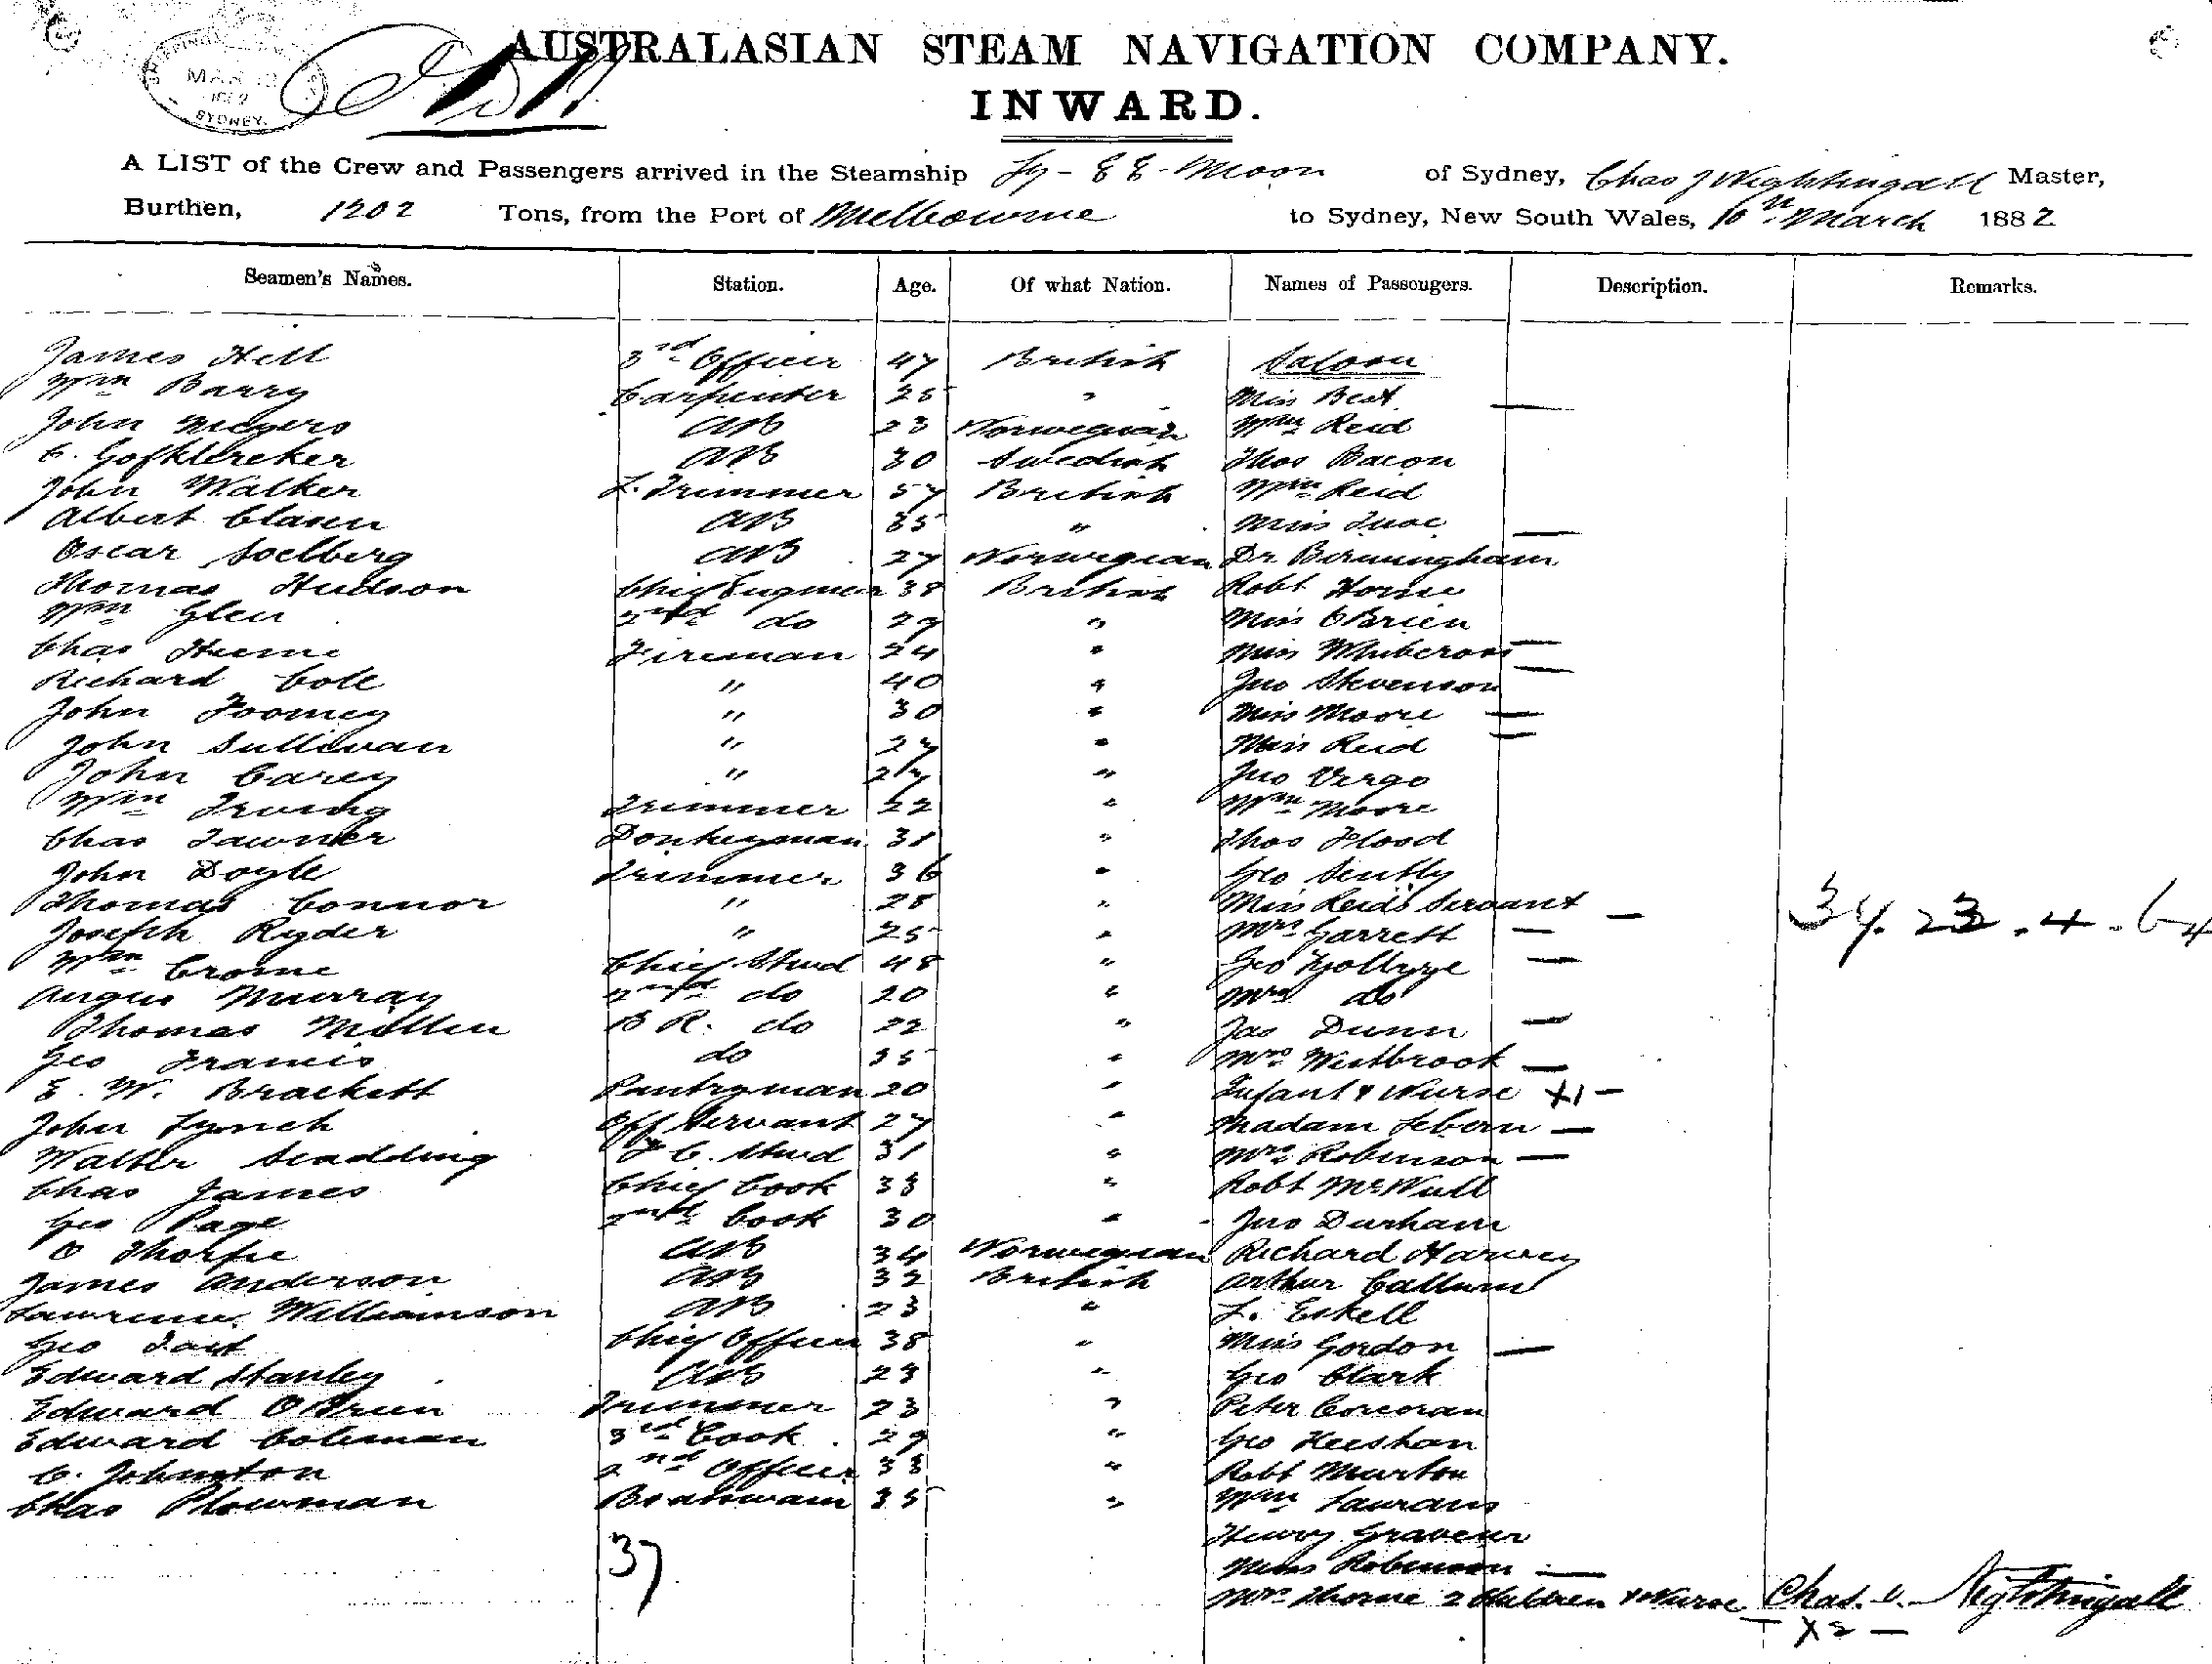 AUSTRALASIAN STEAM NAVIGATION COMPANY.
MAR
SYDNEY.
INWARD.
A LIST of the Crew and Passengers arrived in the Steamship Ly-EE-Moon of Sydney, Chas J Nightingall Master,
Burthen, 1202 Tons, from the Port of Melbourne to Sydney, New South Wales, 10th March 1882
Seamen's Names. Station. Age. Of what Nation. Names of Passengers. Description. Remarks.
James Hill 3rd Officer 47 British Saloon
Wm Barry Carpenter 25 " Miss Best —
John Meyers AB 23 Norwegian Wm Reid
C. AB 30 Swedish Thos Bacon
John Walker L. Trimmer 57 British Wm Reid
Albert Clasen AB 35 " Miss —
Oscar Soelberg AB 27 Norwegian Dr. Birmingham
Thomas Hudson Chief Engineer 38 British Robt Horne
Wm Glen 2nd do 29 " Miss OBrien —
Chas Hume Fireman 24 " Miss —
Richard Cole " 40 " Jno Stevenson
John Toomey " 30 " Miss Moore —
John Sullivan " 27 " Miss Reid —
John Carey " 27 " Jno Virgo
Wm Irving Trimmer 22 " Wm Moore
Chas Tawner Donkeyman 31 " Thos Flood
John Doyle Trimmer 36 " Geo Sently
Thomas Connor " 28 " Miss Reids Servant —
Joseph Ryder " 25 " Mrs Garrett —
Wm Crome Chief Stwd 48 " Geo
Angus Murray 2nd do 20 " Mrs do —
Thomas Mullen B R. do 22 " Jas Dunn
Geo Francis do 35 " Mrs Westbrook —
E. W. Brackett Pantryman 20 " Infant & Nurse X1 —
John Lynch Off Servant 27 " Madam —
Walter Scadding F C. Stwd 31 " Mrs Robinson —
Chas James Chief Cook 33 " Robt McNull
Geo Page 2nd Cook 30 " Jno Durham
O Thorfie AB 34 Norwegian Richard Harvey
James Anderson AB 32 British Arthur Callum
Lawrence Williamson AB 23 " L. Eskell
Geo Tait Chief Officer 38 " Miss Gordon —
Edward Stanley AB 23 " Geo Clark
Edward OBrien Trimmer 23 " Peter Corcoran
Edward Coleman 3rd Cook 29 " Geo Heeshan
C. Johnston 2nd Officer 33 " Robt Murton
Chas Plowman Boatswain 35 " Wm
Henry Graveur
37 Miss Robinson —
Mrs Thorne 2 Children & Nurse Chas. J. Nightingall
— X2 —